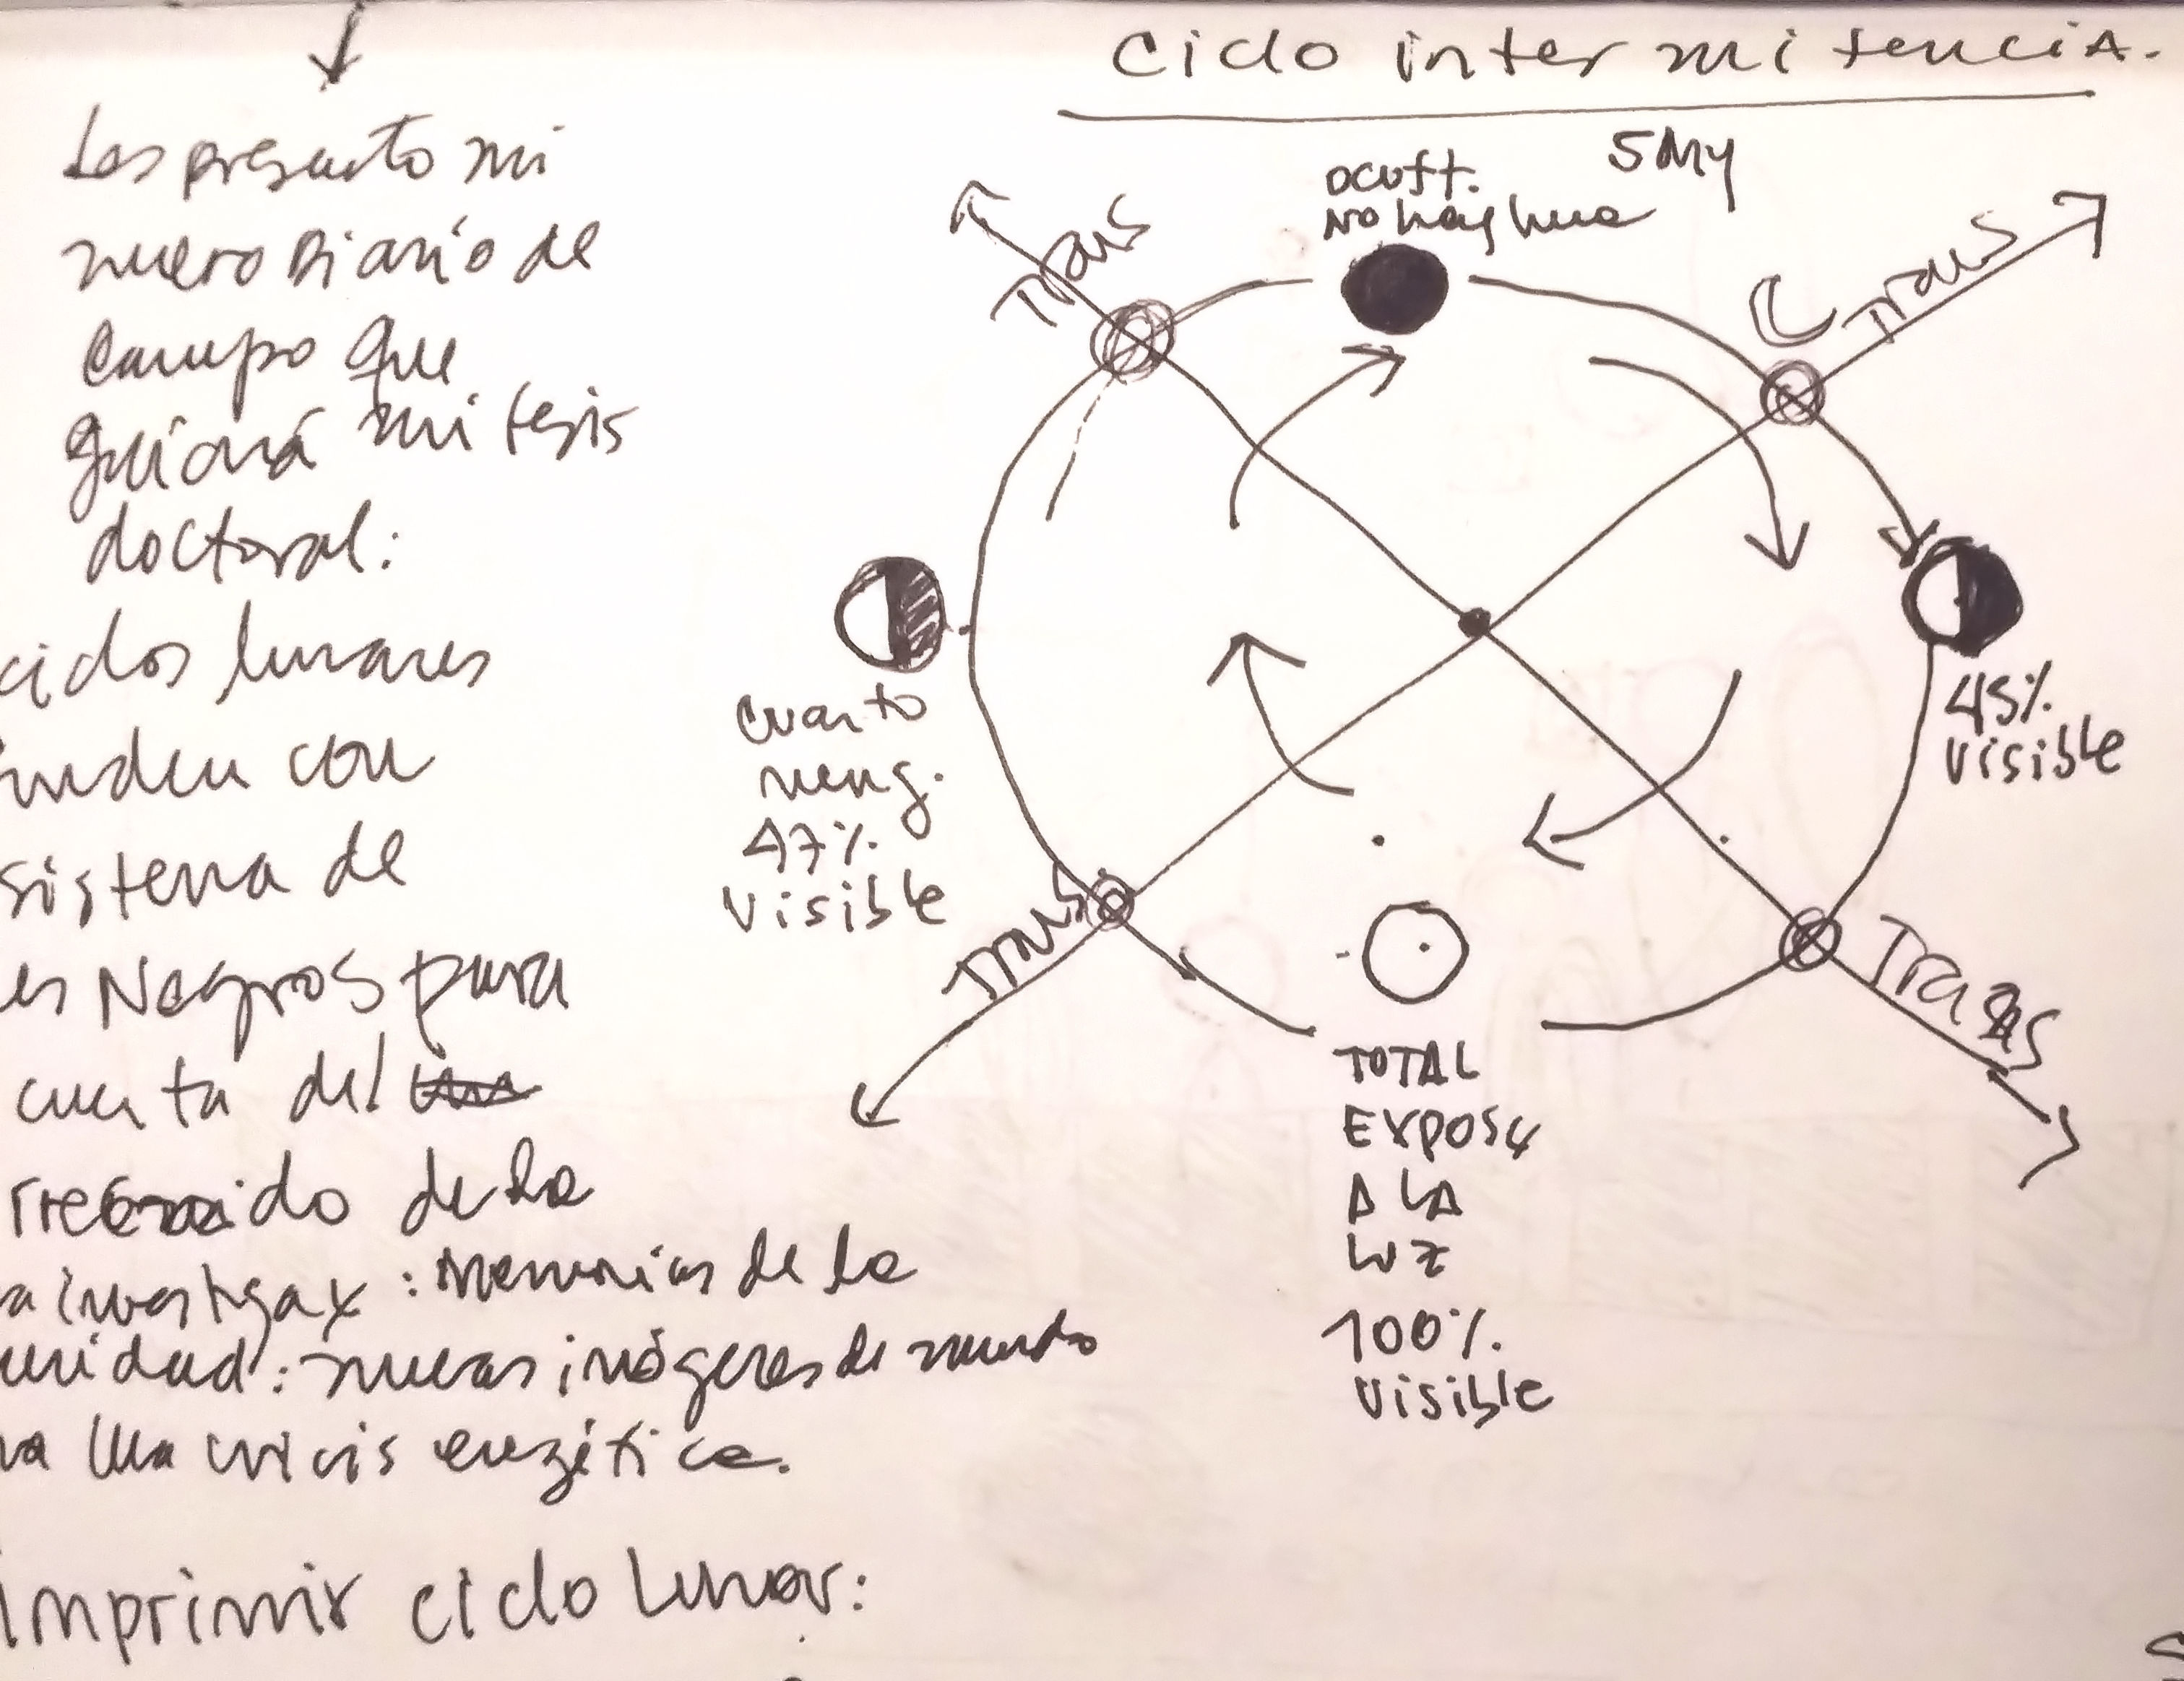 Les presento mi
nuevo Diario de
campo que
guiará mi tesis
doctoral:
ciclos lunares
unden con
sistema de
es Negros para
cuenta del
de la
a investigax : Memorias de la
unidad: nuevas imágenes de mundo
una crisis
imprimir ciclo lunar:
Ciclo intermitencia.
5 My
ocult.
No hay luna
Trans
Trans
45%
visible
cuarto
meng.
47%.
visible
Trans
Trans
TOTAL
EXPOSX
A LA
LUZ
100%.
visible